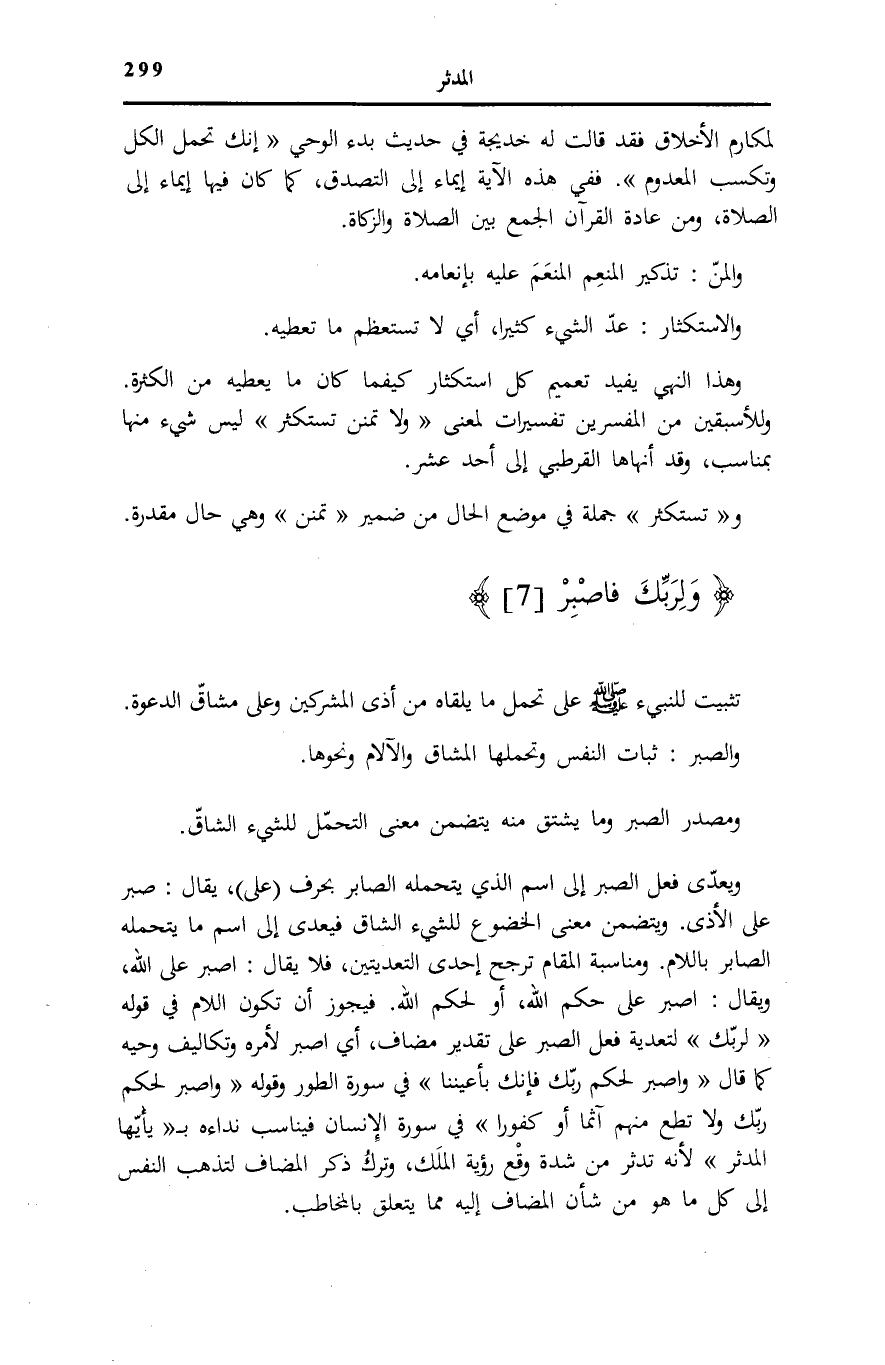 299
المدثر
لمكارم الأخلاق فقد قالت له خديجة في حديث بدء الوحي « إنك تحمل الكل
وتكسب المعدوم ». ففي هذه الآية إيماء إلى التصدق، كما كان فيها إيماء إلى
الصلاة، ومن عادة القرآن الجمع بين الصلاة والزكاة.
والمنّ : تذكير المنعِم المنعَمَ عليه بإنعامه.
والاستكثار : عدّ الشيء كثيرا، أي لا تستعظم ما تعطيه.
وهذا النهي يفيد تعميم كل استكثار كيفما كان ما يعطيه من الكثرة.
وللأسبقين من المفسرين تفسيرات لمعنى « ولا تمنن تستكثر » ليس شيء منها
بمناسب، وقد أنهاها القرطبي إلى أحد عشر.
و« تستكثر » جملة في موضع الحال من ضمير « تمنن » وهي حال مقدرة.
﴿ وَلِرَبِّكَ فاصْبِرْ [7] ﴾
تثبيت للنبيء ﷺ على تحمل ما يلقاه من أذى المشركين وعلى مشاقّ الدعوة.
والصبر : ثبات النفس وتحملها المشاق والآلام ونحوها.
ومصدر الصبر وما يشتق منه يتضمن معنى التحمّل للشيء الشاقّ.
ويعدّى فعل الصبر إلى اسم الذي يتحمله الصابر بحرف (على)، يقال : صبر
على الأذى. ويتضمن معنى الخضوع للشيء الشاق فيعدى إلى اسم ما يتحمله
الصابر باللام. ومناسبة المقام ترجح إحدى التعديتين، فلا يقال : اصبر على الله،
ويقال : اصبر على حكم الله، أو لحكم الله. فيجوز أن تكون اللام في قوله
« لربّك » لتعدية فعل الصبر على تقدير مضاف، أي اصبر لأمره وتكاليف وحيه
كما قال « واصبر لحكم ربّك فإنك بأعيننا » في سورة الطور وقوله « واصبر لحكم
ربّك ولا تطع منهم آثما أو كفورا » في سورة الإنسان فيناسب نداءه بـ« يأيّها
المدثر » لأنه تدثر من شدة وقْع رؤية الملَك، وتركُ ذكر المضاف لتذهب النفس
إلى كل ما هو من شأن المضاف إليه مما يتعلق بالمخاطب.